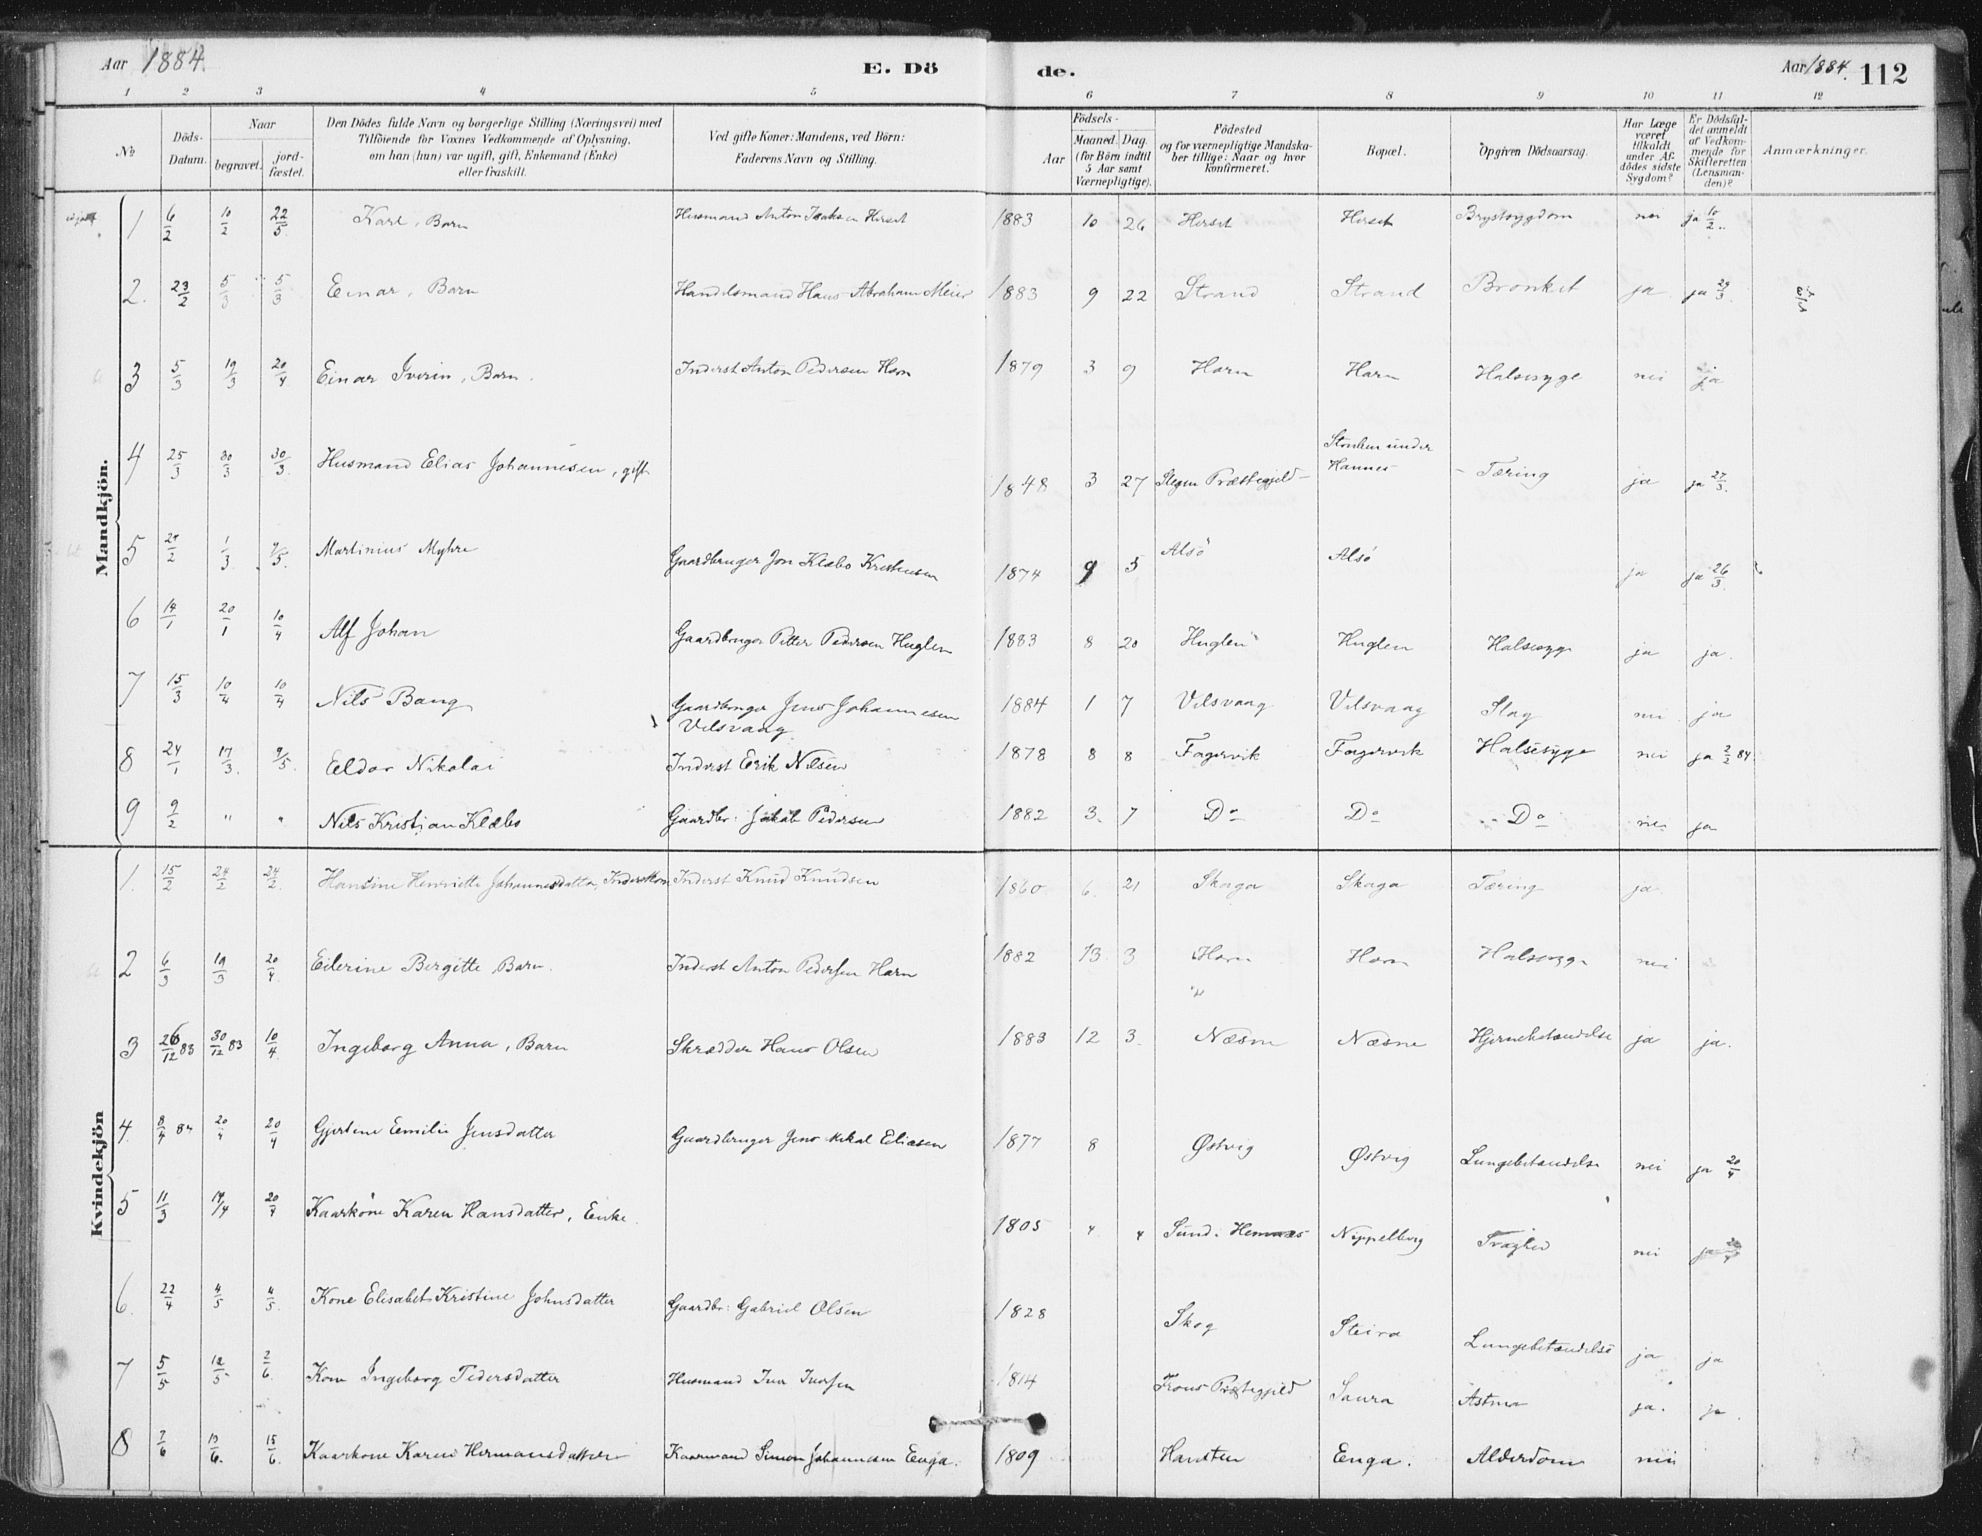 Aar 1884. E. Dö de. Aar 1884. 112
1 2 3 4 5 6 7 8 9 10 11 12
№ Döds-Datum. Naar begravet. jord-fæstet. Den Dödes fulde Navn og borgerlige Stilling (Næringsvei) med Tilföiende for Voxnes Vedkommende af Oplysning, om han (hun) var ugift, gift, Enkemand (Enke) eller fraskilt. Ved gifte Koner: Mandens, ved Börn: Faderens Navn og Stilling. Födsels- Aar Maaned. Dag. (for Börn indtil 5 Aar samt Værnepligtige). Födested og for værnepligtige Mandskaber tillige: Naar og hvor konfirmeret. Bopæl. Opgiven Dödsaarsag. Har Læge været tilkaldt under Afdödes sidste Sygdom? Er Dödsfaldet anmeldt af Vedkommende for Skifteretten (Lensmanden)? Anmærkninger.
Mandkjön.
1 6/2 10/2 22/5. Karl, Barn Husmand Anton Isaksen Hirset 1883 10 26 Hirset Hirset Brystsygdom nei ja 10/2.
2. 23/2 5/3 5/3 Einar, Barn Handelsmand Hans Abraham Meier 1883 9 22 Strand Strand Bronkit ja ja
3 5/3 19/3 20/4 Einar Iverin, Barn. Inderst Anton Pedersen Horn 1879 3 9 Horn Horn Halsesyge nei ja
4 25/3 30/3 30/3. Husmand Elias Johannesen, gift 1848 3 27 Stegen Præstegjeld under Hannes Tæring ja ja 27/3.
5 1/3. 9/5. Martinius Myhre Gaardbruger Jon Klæbo 1874 9 5 Alsö Alsö ja ja 26/3.
6 14/1 20/1 10/4 Alf Johan Gaardbruger Petter Pedersen Huglen 1883 8 20 Huglen Huglen Halsesyge ja ja.
7 15/3 10/4 10/4 Nils Bang Gaardbruger Jens Johannesen Vilsvaag 1884 1 7 Vilsvaag Vilsvaag Slag nei ja
8 24/1 17/3. 9/5. Eldor Nikolai Inderst Erik Nilsen 1878 8 8 Fagervik Fagervik Halsesyge nei ja 2/2 84.
9 9/2 " " Nils Kristian Klæbo Gaardbr: Jakob Pedersen 1882 3. 7 Do Do Do nei ja
Kvindekjön
1. 15/2 24/2 24/2. Hansine Henriette Johannesdatter, Inderstkone Inderst Knud Knudsen 1860 6. 21 Skaga Skaga Tæring ja.
2 6/3 19/3 20/4 Eilerine Bergitte Barn. Inderst Anton Pedersen Horn 1882 13. 3 Horn " Horn Halsesyge nei
3 26/12 83 30/12 83 10/4. Ingeborg Anna, Barn Skrædder Hans Olsen 1883 12 3. Næsne Næsne Hjernebetændelse ja ja.
4. 8/4 84 20/4 20/4 Gjertine Emilie Jensdatter Gaardbruger Jens Mikal Eliasen 1877 8 Østvig Østvig Lungebetændelse nei ja 20/4
5 11/3 14/4 20/4 Kaarkone Karen Hansdatter, Enke. 1805 4 4 Sund. Hemnæs Nippelberg nei ja
6. 22/4 4/5 4/5. Kone Elisabet Kristine Johnsdatter Gaardbr: Gabriel Olsen 1828 Skog Steira Lungebetændelse ja ja
7 5/5 12/5 2/6. Kone Ingeborg Pedersdatter Husmand Ivar Ivarsen 1814 Præstegjeld Saura Astma ja. ja.
8 2/6 13/6. 15/6. Kaarkone Karen Hermansdatter Kaarmand Simon Johannesen Enga. 1809 Enga. Alderdom nei